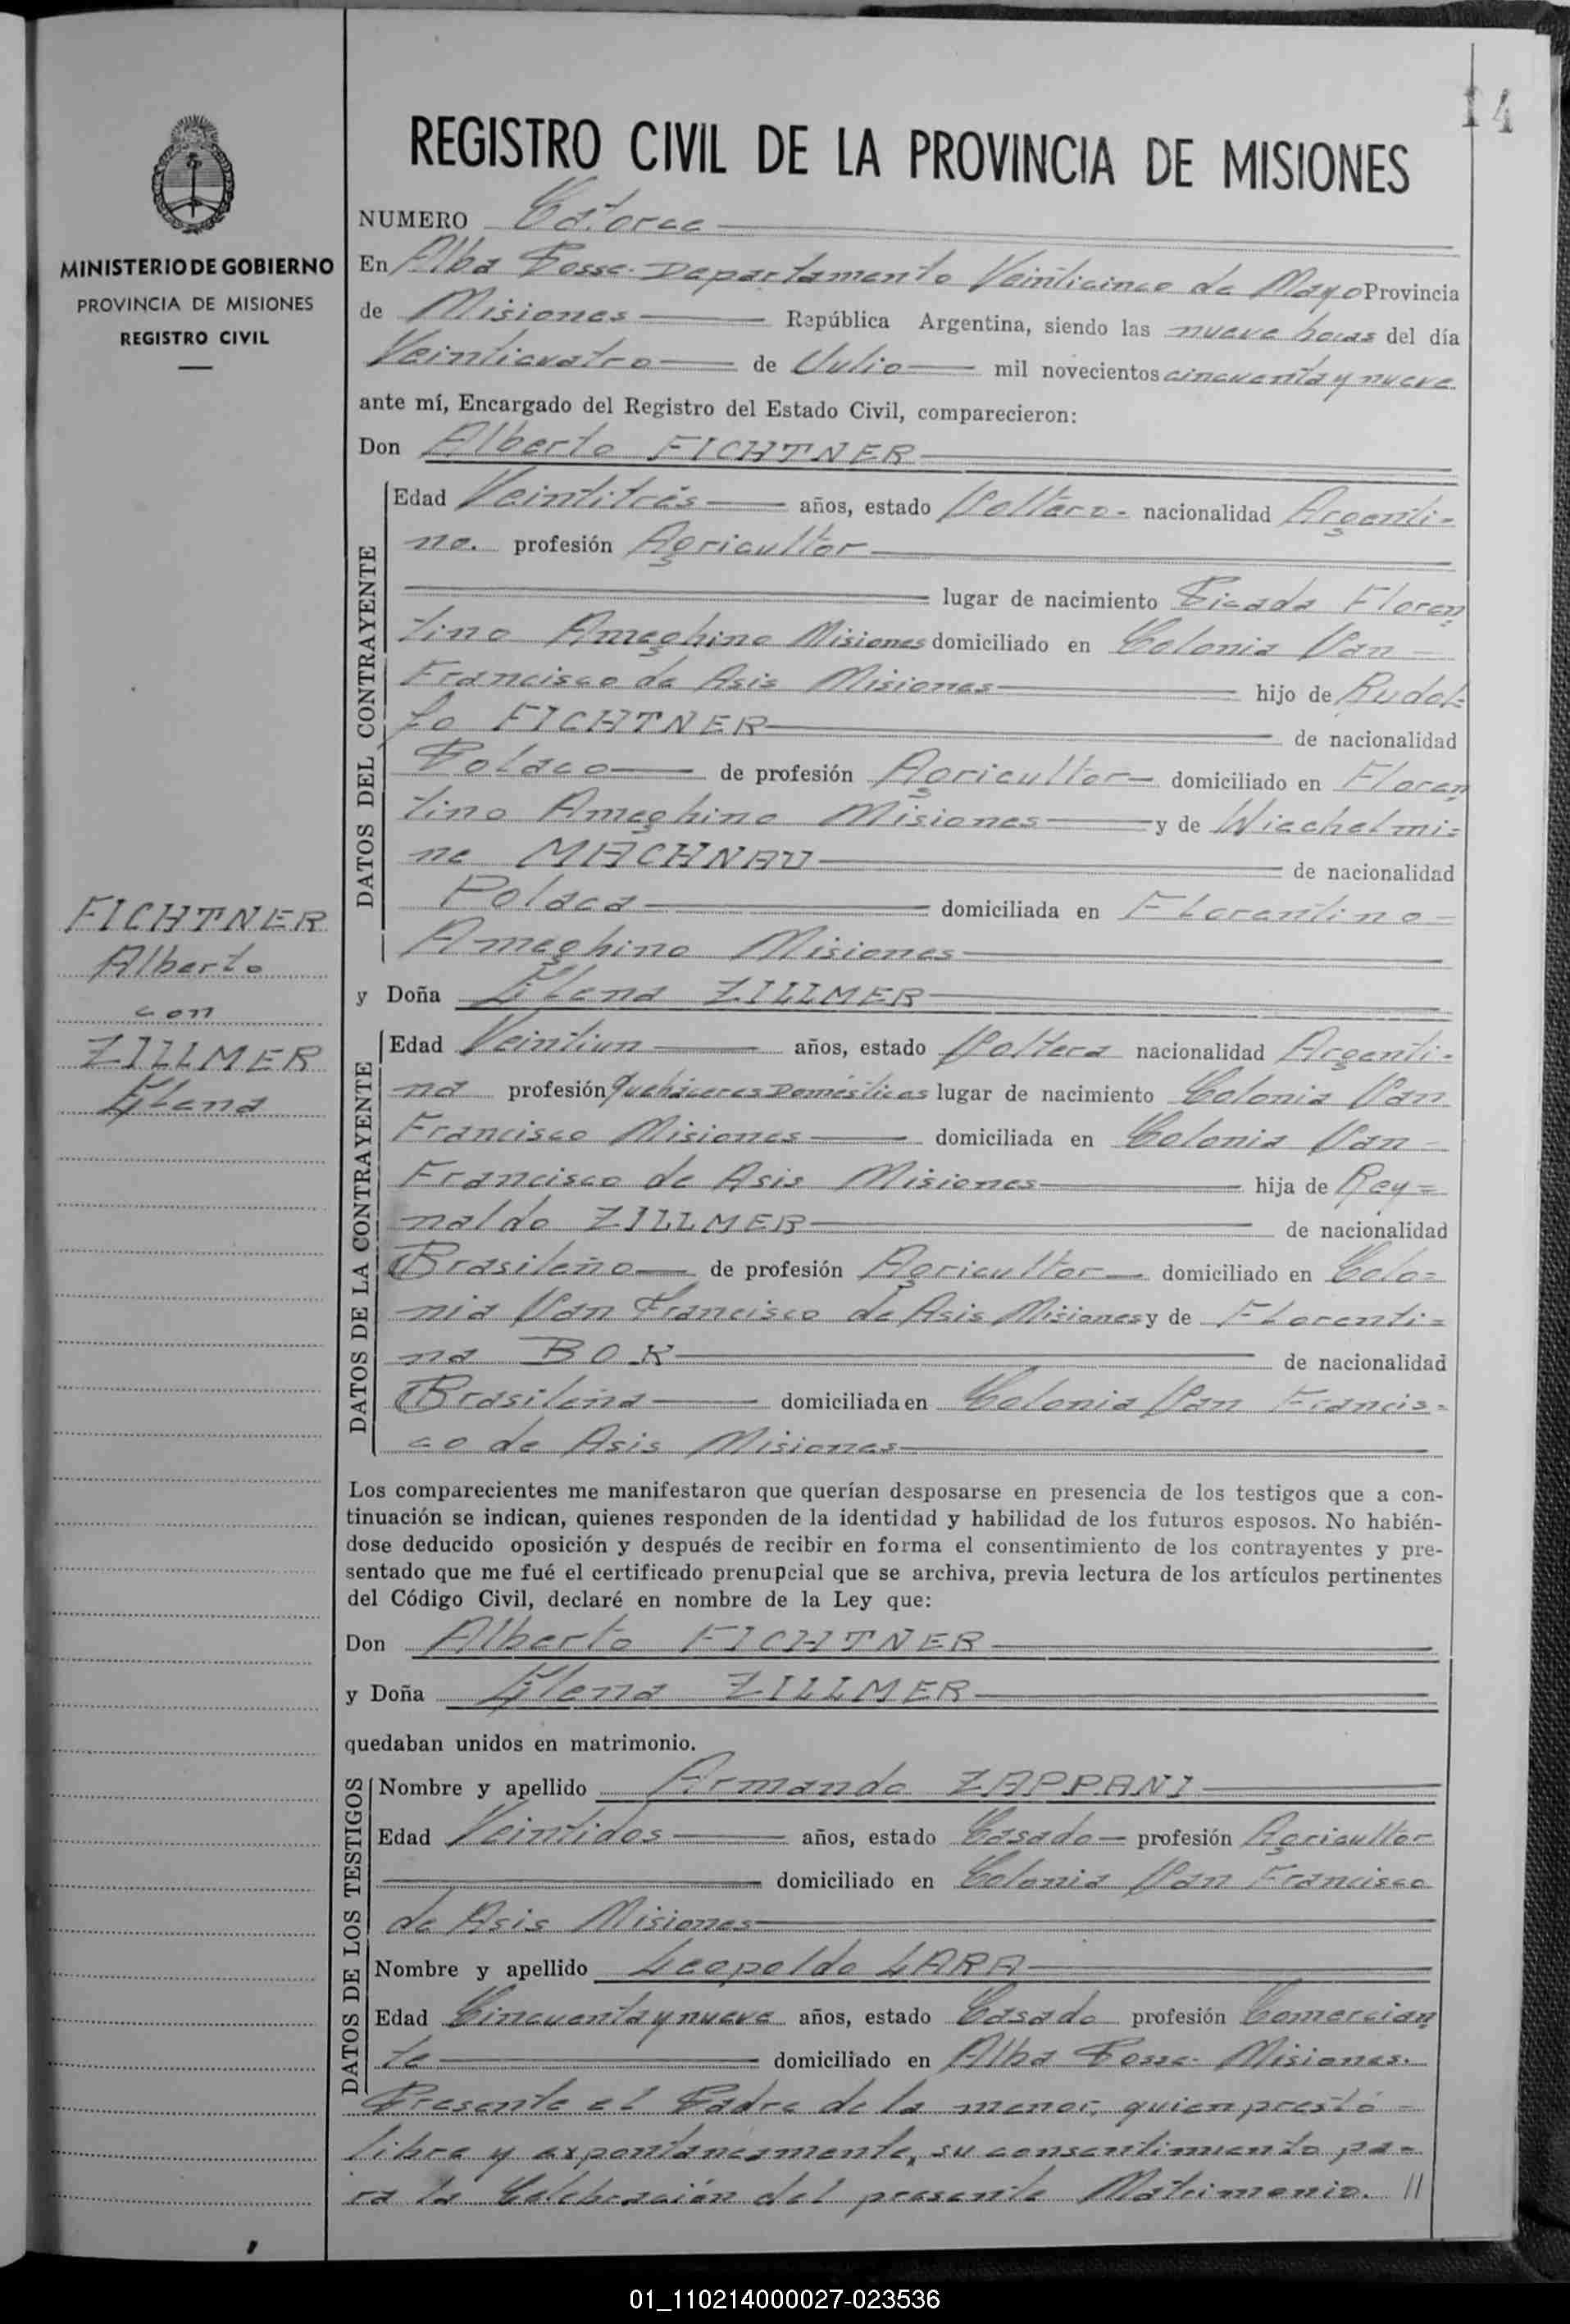 14
REGISTRO CIVIL DE LA PROVINCIA DE MISIONES
MINISTERIO DE GOBIERNO
PROVINCIA DE MISIONES
REGISTRO CIVIL
NUMERO Catorce
En Alba Posse - Departamento Veinticinco de Mayo Provincia
de Misiones República Argentina, siendo las nueve horas del día
Veinticuatro de Julio mil novecientos cincuenta y nueve
ante mí, Encargado del Registro del Estado Civil, comparecieron:
Don Alberto FICHTNER
DATOS DEL CONTRAYENTE
Edad Veintitrés años, estado Soltero - nacionalidad Argenti=
no. profesión Agricultor
lugar de nacimiento Picada Floren
tino Ameghino Misiones domiciliado en Colonia San -
Francisco de Asis Misiones hijo de Rudol=
fo FICHTNER de nacionalidad
Polaco de profesión Agricultor domiciliado en Floren
tino Ameghino Misiones y de Wiechelmi=
ne MACHNAU de nacionalidad
Polaca domiciliada en Florentino -
Ameghino Misiones
FICHTNER
Alberto
con
ZILLMER
Elena
y Doña Elena ZILLMER
DATOS DE LA CONTRAYENTE
Edad Veintiun años, estado Soltera nacionalidad Argenti=
na profesión Quehaceres Domésticos lugar de nacimiento Colonia San
Francisco Misiones domiciliada en Colonia San -
Francisco de Asis Misiones hija de Rey=
naldo ZILLMER de nacionalidad
Brasileño de profesión Agricultor domiciliado en Colo=
nia San Francisco de Asis Misiones y de Florenti=
na BOK de nacionalidad
Brasileña domiciliada en Colonia San Francis=
co de Asis Misiones
Los comparecientes me manifestaron que querían desposarse en presencia de los testigos que a con-
tinuación se indican, quienes responden de la identidad y habilidad de los futuros esposos. No habién-
dose deducido oposición y después de recibir en forma el consentimiento de los contrayentes y pre-
sentado que me fué el certificado prenupcial que se archiva, previa lectura de los artículos pertinentes
del Código Civil, declaré en nombre de la Ley que:
Don Alberto FICHTNER
y Doña Elena ZILLMER
quedaban unidos en matrimonio.
DATOS DE LOS TESTIGOS
Nombre y apellido Armando ZAPPANI
Edad Veintidos años, estado Casado profesión Agricultor
domiciliado en Colonia San Francisco
de Asis Misiones
Nombre y apellido Leopoldo LARA
Edad Cincuenta y nueve años, estado Casado profesión Comercian
te domiciliado en Alba Posse - Misiones.
Presente el Padre de la menor, quien prestó =
libre y expontáneamente, su consentimiento pa=
ra la Celebración del presente Matrimonio. //
01_110214000027-023536